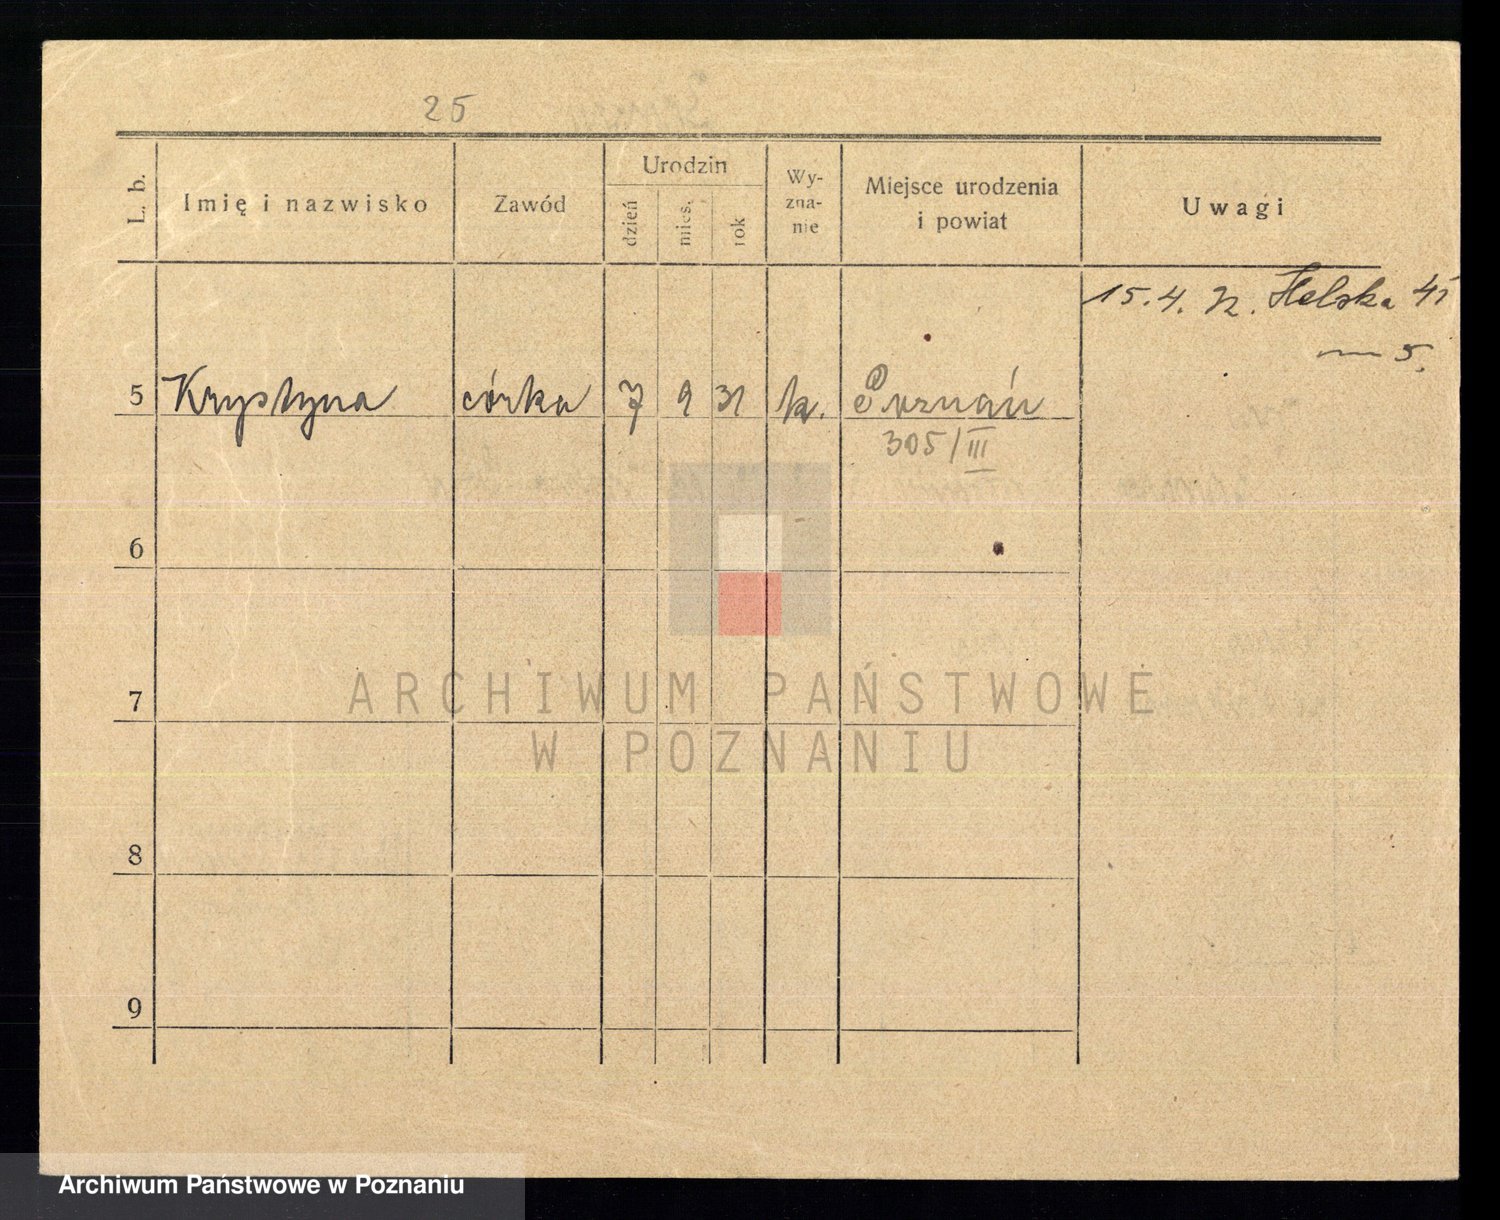 25
L. b. Imię i nazwisko Zawód Urodzin dzień mies. rok Wy- zna- nie Miejsce urodzenia i powiat Uwagi
15.4. Helska 41
5.
5 Krystyna córka 7 9 31 k. Poznań
305/III
6
ARCHIWUM PAŃSTWOWE
7
W POZNANIU
8
9
Archiwum Państwowe w Poznaniu